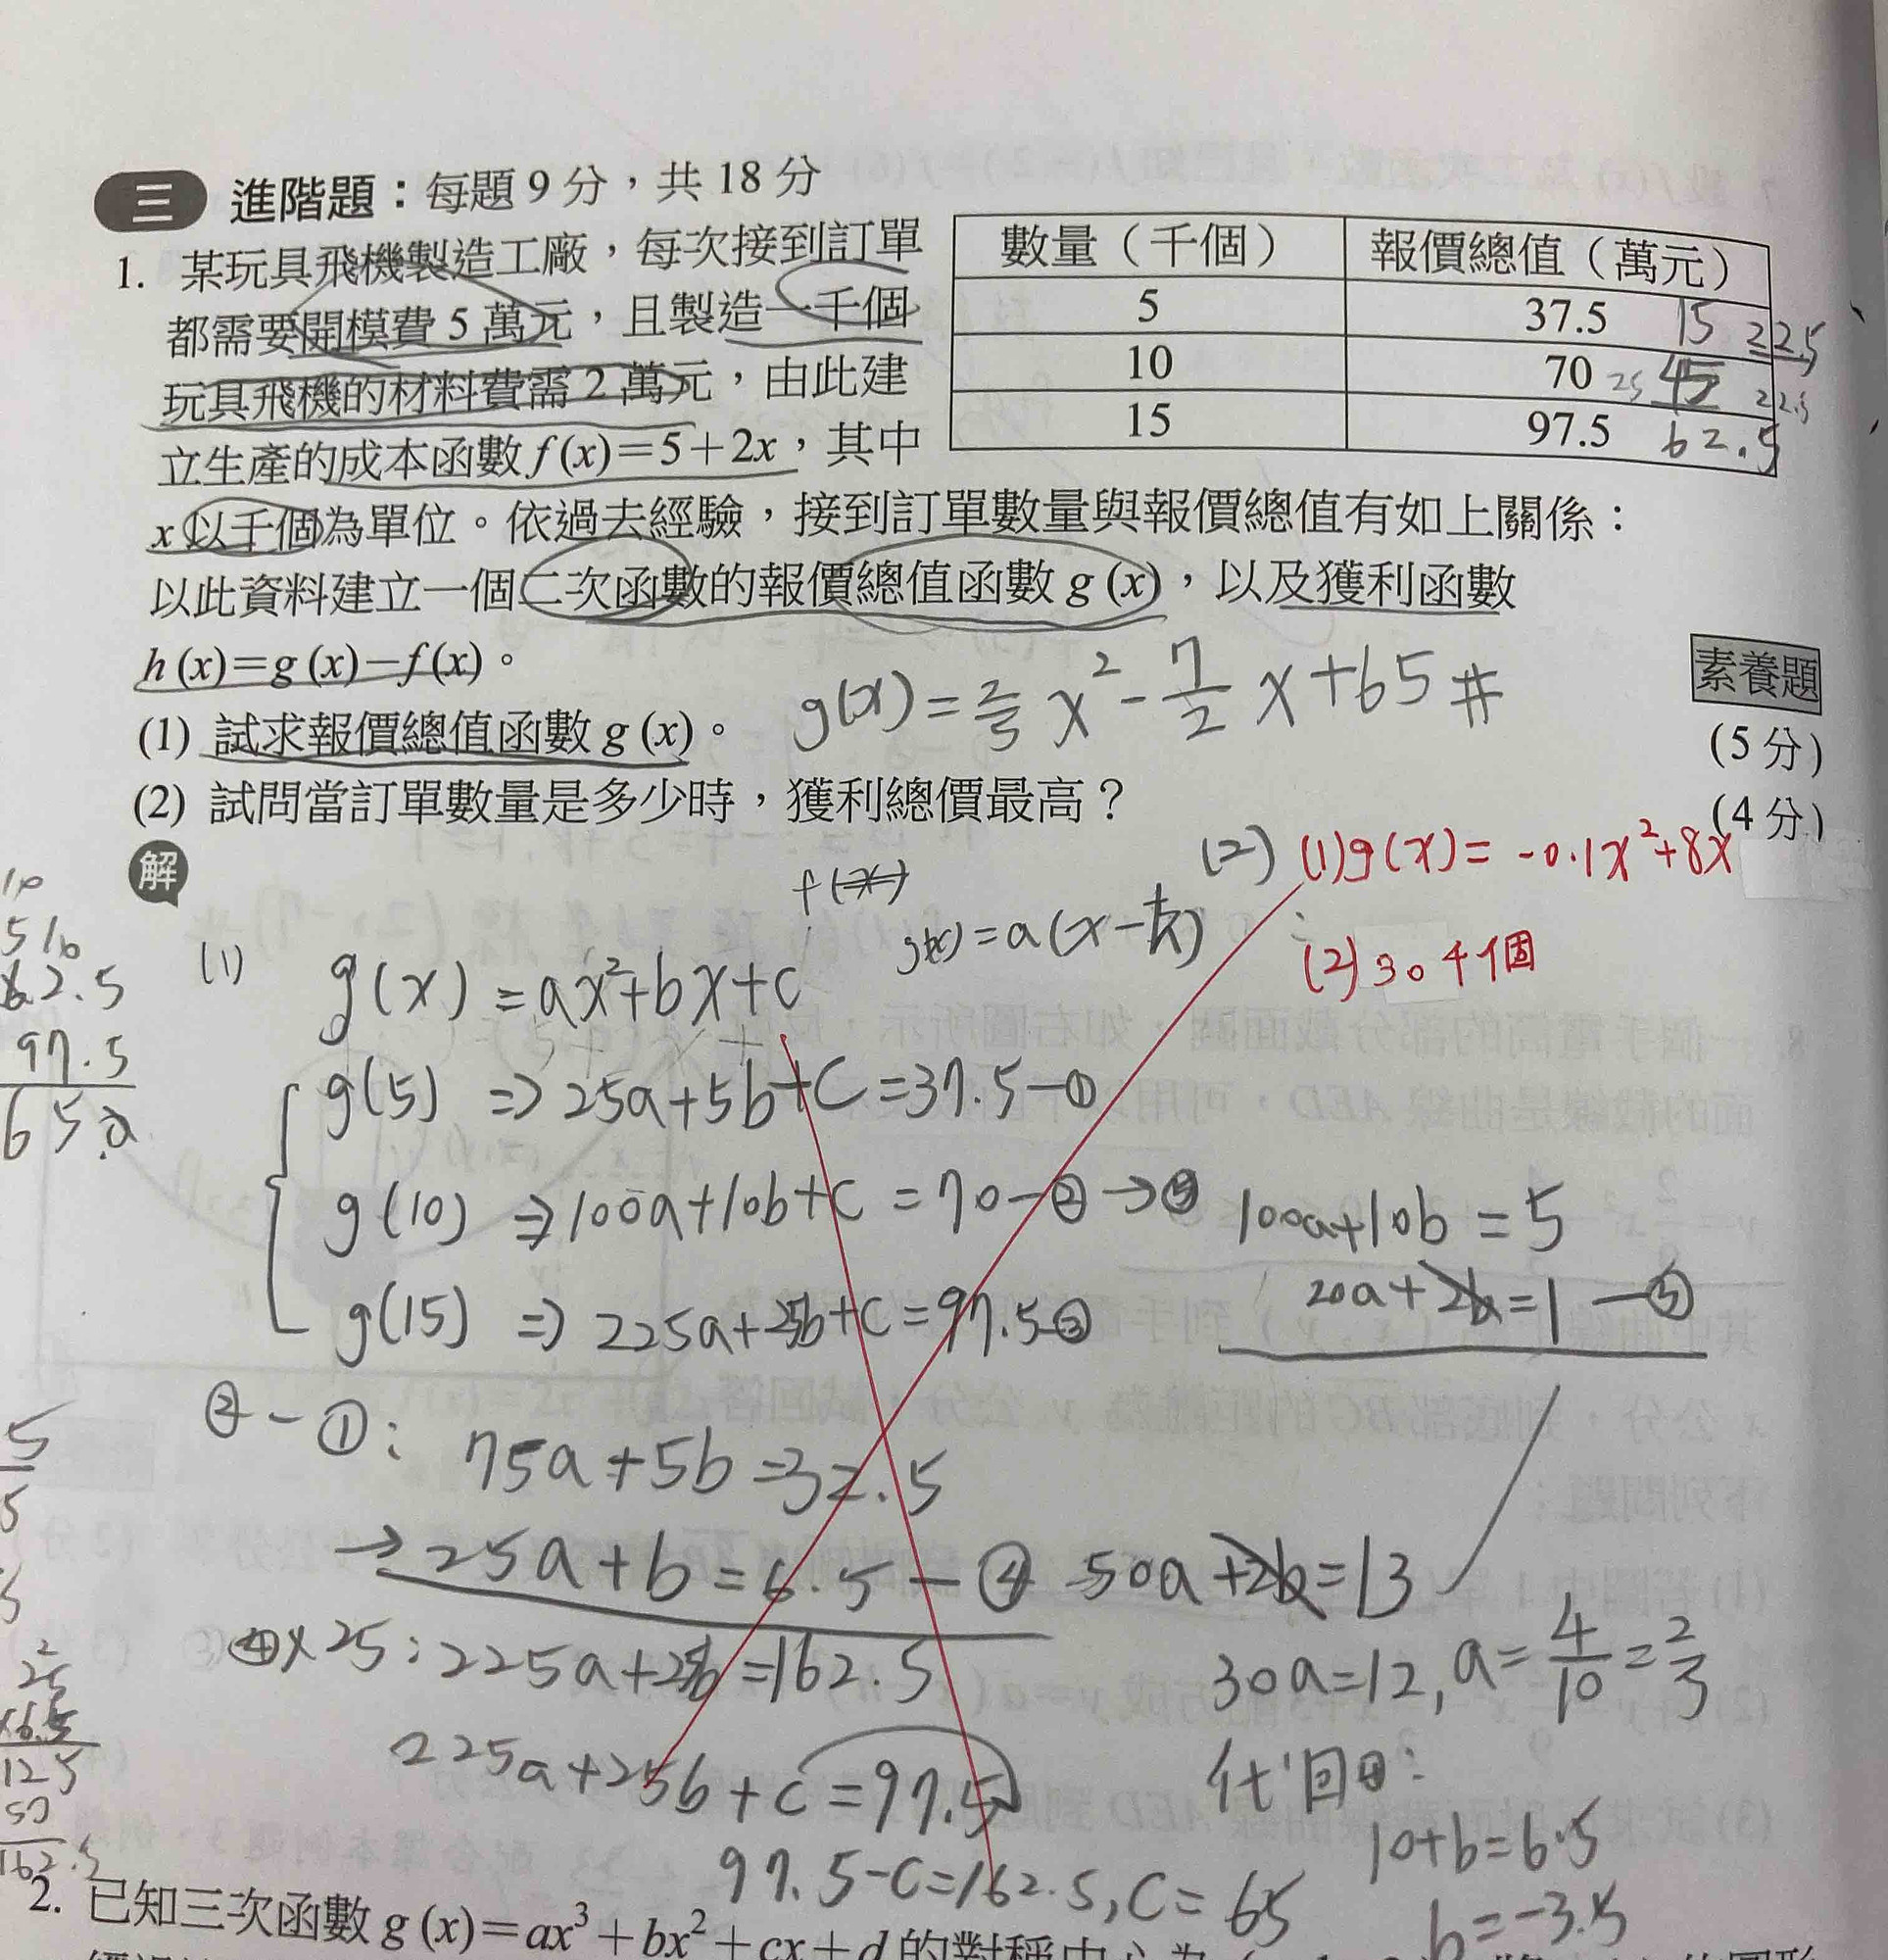 三 進階題：每題 9 分，共 18 分
1. 某玩具飛機製造工廠，每次接到訂單
都需要開模費 5 萬元，且製造一千個
玩具飛機的材料費需 2 萬元，由此建
立生產的成本函數 f(x)=5+2x，其中
數量（千個） 報價總值（萬元）
5 37.5 15 22.5
10 70 25 45 22.5
15 97.5 62.5
x 以千個為單位。依過去經驗，接到訂單數量與報價總值有如上關係：
以此資料建立一個二次函數的報價總值函數 g (x)，以及獲利函數
h (x)=g (x)−f(x)。
素養題
(1) 試求報價總值函數 g (x)。 g(x)=2/5 x²-7/2 x+65 # (5 分)
(2) 試問當訂單數量是多少時，獲利總價最高？ (4 分)
解
(2) (1)g(x)= -0.1x²+8x
(2)30千個
g(x)=a(x-h)
(1) g(x)=ax²+bx+c
g(5) ⇒ 25a+5b+c=37.5-①
g(10) ⇒ 100a+10b+c=70-②
100a+10b=5
g(15) ⇒ 225a+25b+c=97.5③
20a+2b=1-⑤
②-①: 75a+5b=32.5
→25a+b=6.5-④ 50a+2b=13
④x25: 225a+25b=162.5
30a=12, a=4/10=2/5
225a+25b+c=97.5
代回④:
10+b=6.5
97.5-c=162.5, c=65
b=-3.5
62.5
97.5
25
x6.5
125
162.5
2. 已知三次函數 g (x)=ax³+bx²+cx+d 的對稱中心為